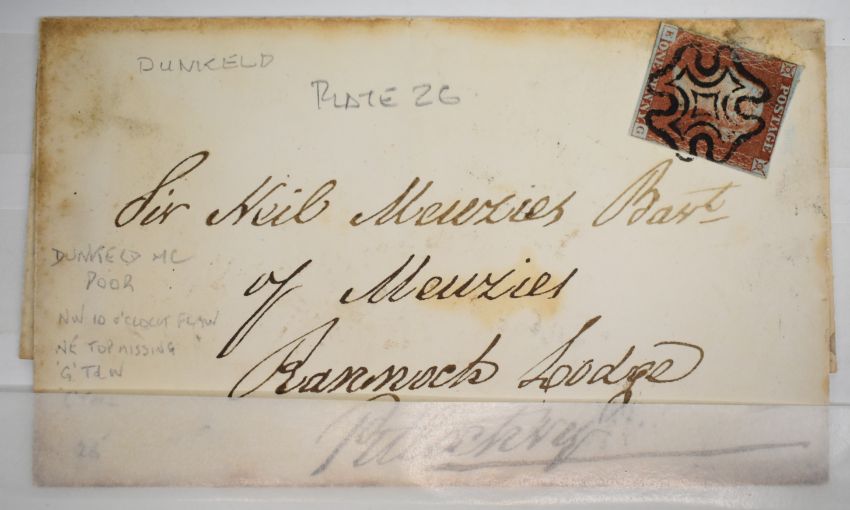 DUNKELD
PLATE 26
POSTAGE
ONE PENNY G
Sir Neil Menzies Bart
of Menzies
Rannock Lodge
DUNKELD MC
POOR
NW 10 O'CLOCK FLAW
NE TOP MISSING
'G' T
26